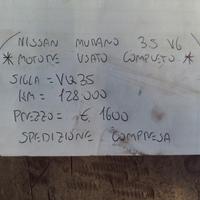 NISSAN MURANO 3.5 V6
*MOTORE USATO COMPLETO*
SIGLA = VQ35
KM = 128.000
PREZZO = € 1600
SPEDIZIONE COMPRESA